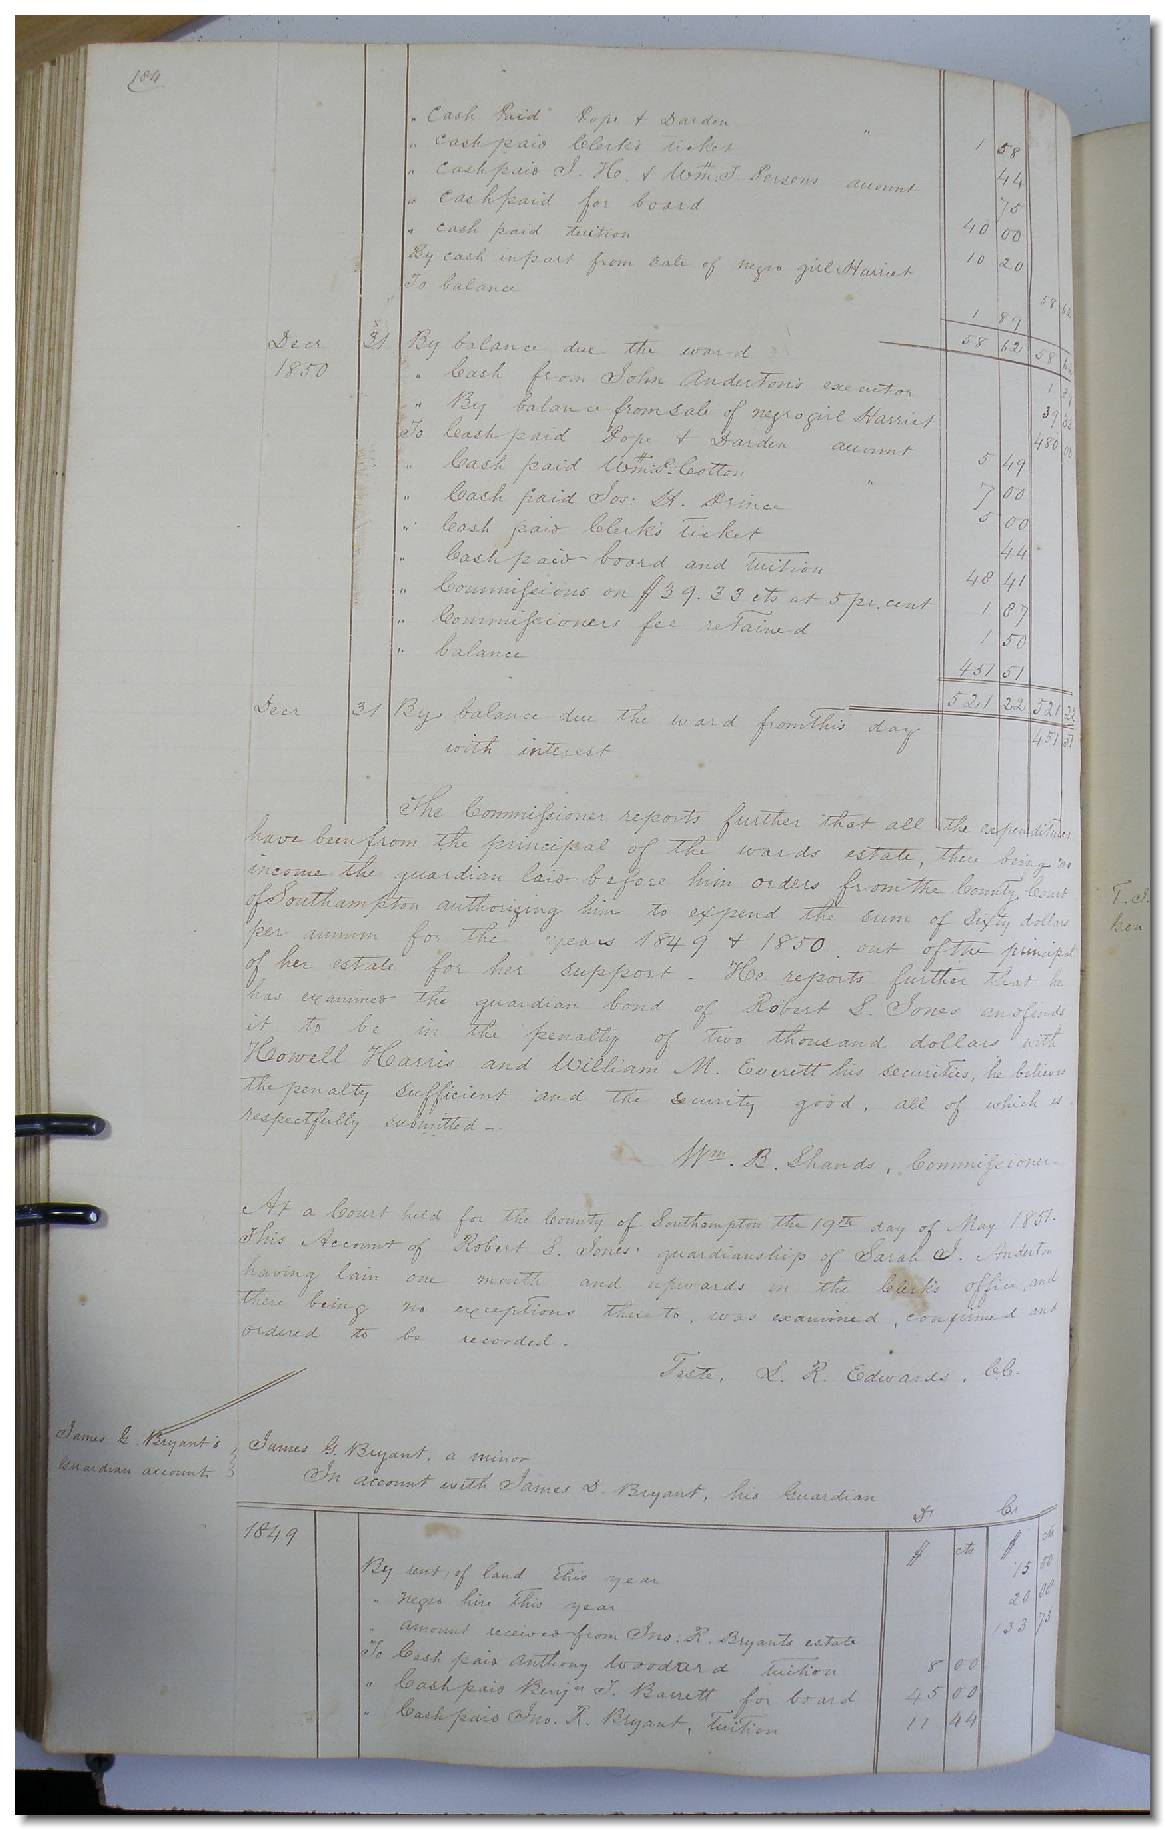 184
" Cash Paid Pope & Darden " 1 58
" cash paid Clerk's ticket 44
" cash paid J. H. & Wm. J. Persons account 75
" cash paid for board 40 00
" cash paid tuition 10 20
By cash in part from sale of negro girl Harriet 58 62
To balance 1 89
58 62 58 62
Decr 31 By balance due the ward 1
1850 " Cash from John Anderton's executor 39 33
" By balance from sale of negro girl Harriet 480 00
To Cash paid Pope & Darden account 5 49
" Cash paid Wm. P. Cotton " 7 00
" Cash paid Jos: H. Prince 5 00
" Cash paid Clerk's ticket 44
" Cash paid board and tuition 48 41
" Commissions on $39.33 cts at 5 pr. cent 1 87
" Commissioners fee retained 1 50
" balance 451 51
521 22 521 22
Decr 31 By balance due the ward from this day 451 51
with interest
The Commissioner reports further that all the expenditures
have been from the principal of the wards estate, there being no
income the guardian laid before him orders from the County Court
of Southampton authorizing him to expend the sum of Sixty dollars
per annum for the years 1849 & 1850 out of the principal
of her estate for her support - He reports further that he
has examined the guardian bond of Robert S. Jones and finds
it to be in the penalty of two thousand dollars with
Howell Harris and William M. Everett his securities, he believes
the penalty sufficient and the security good, all of which is
respectfully submitted -
Wm. B. Shands, Commissioner
At a Court held for the County of Southampton the 19th day of May 1851.
This Account of Robert S. Jones' guardianship of Sarah J. Anderton
having lain one month and upwards in the Clerk's office, and
there being no exceptions thereto, was examined, confirmed and
ordered to be recorded.
Teste, L. R. Edwards, C.C.
James G. Bryant's
Guardian account
James G. Bryant, a minor
In account with James D. Bryant, his Guardian
Dr Cr
1849 $ cts $ cts
By rent of land this year 15 00
" negro hire this year 20 00
" amount received from Jno: R. Bryants estate 133 73
To Cash paid Anthony Woodard tuition 8 00
" Cash paid Benjn J. Barrett for board 45 00
" Cash paid Jno. R. Bryant, Tuition 11 44